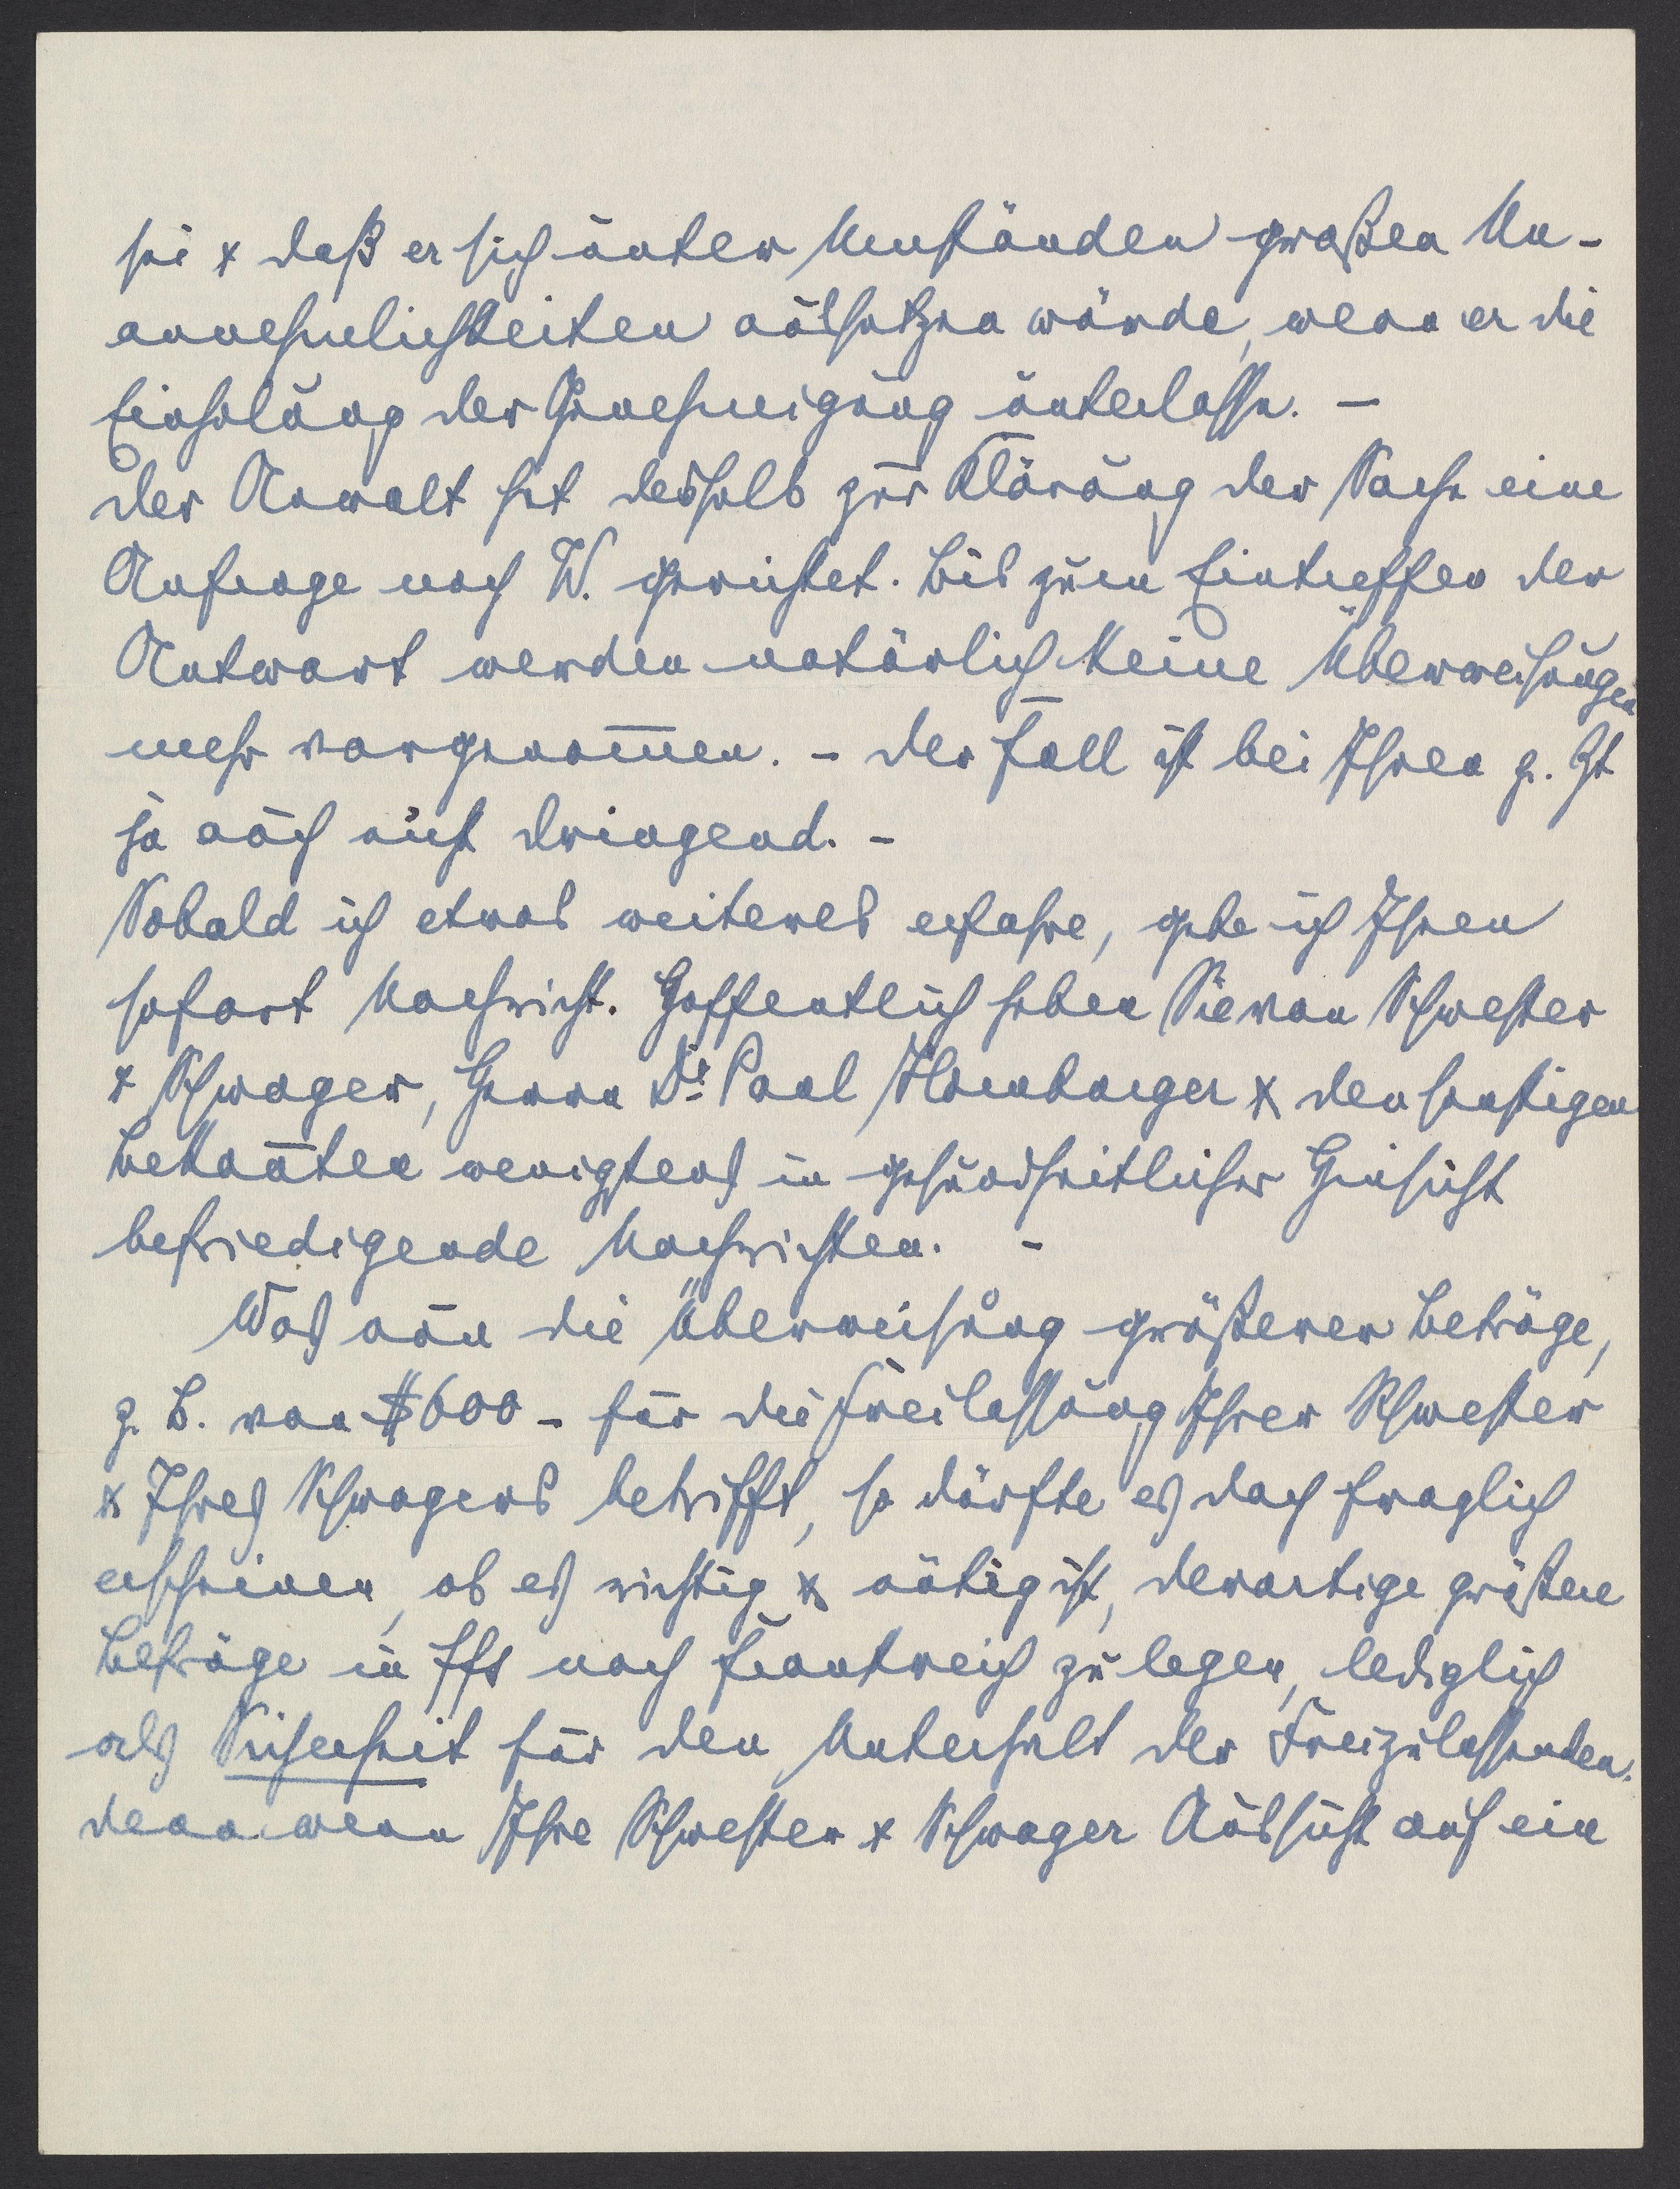 sei & daß er sich unter Umständen großen Un-
annehmlichkeiten aussetzen würde, wenn er die
Einholung der Genehmigung unterlasse. —
Der Anwalt hat deshalb zur Klärung der Sache eine
Anfrage nach W. gerichtet. Bis zum Eintreffen der
Antwort werden natürlich keine Überweisungen
mehr vorgenom̄en. - Der Fall ist bei Ihnen z. Zt
ja auch nicht dringend. -
Sobald ich etwas weiteres erfahre, gebe ich Ihnen
sofort Nachricht. Hoffentlich haben Sie von Schwester
& Schwager, Herrn Dr. Paul Homburger & den sonstigen
Bekan̄ten wenigstens in gesundheitlicher Hinsicht
befriedigende Nachrichten. -
Was nun die Überweisung größerer Beträge,
z. B. von $600 - für die Freilassung Ihrer Schwester
& Ihres Schwagers betrifft, so dürfte es doch fraglich
erscheinen, ob es richtig & nötig ist, derartige größere
Beträge in ffs nach Frankreich zu legen, lediglich
als Sicherheit für den Unterhalt der Freizulassenden.
Denn wenn Ihre Schwester & Schwager Aussicht auf ein